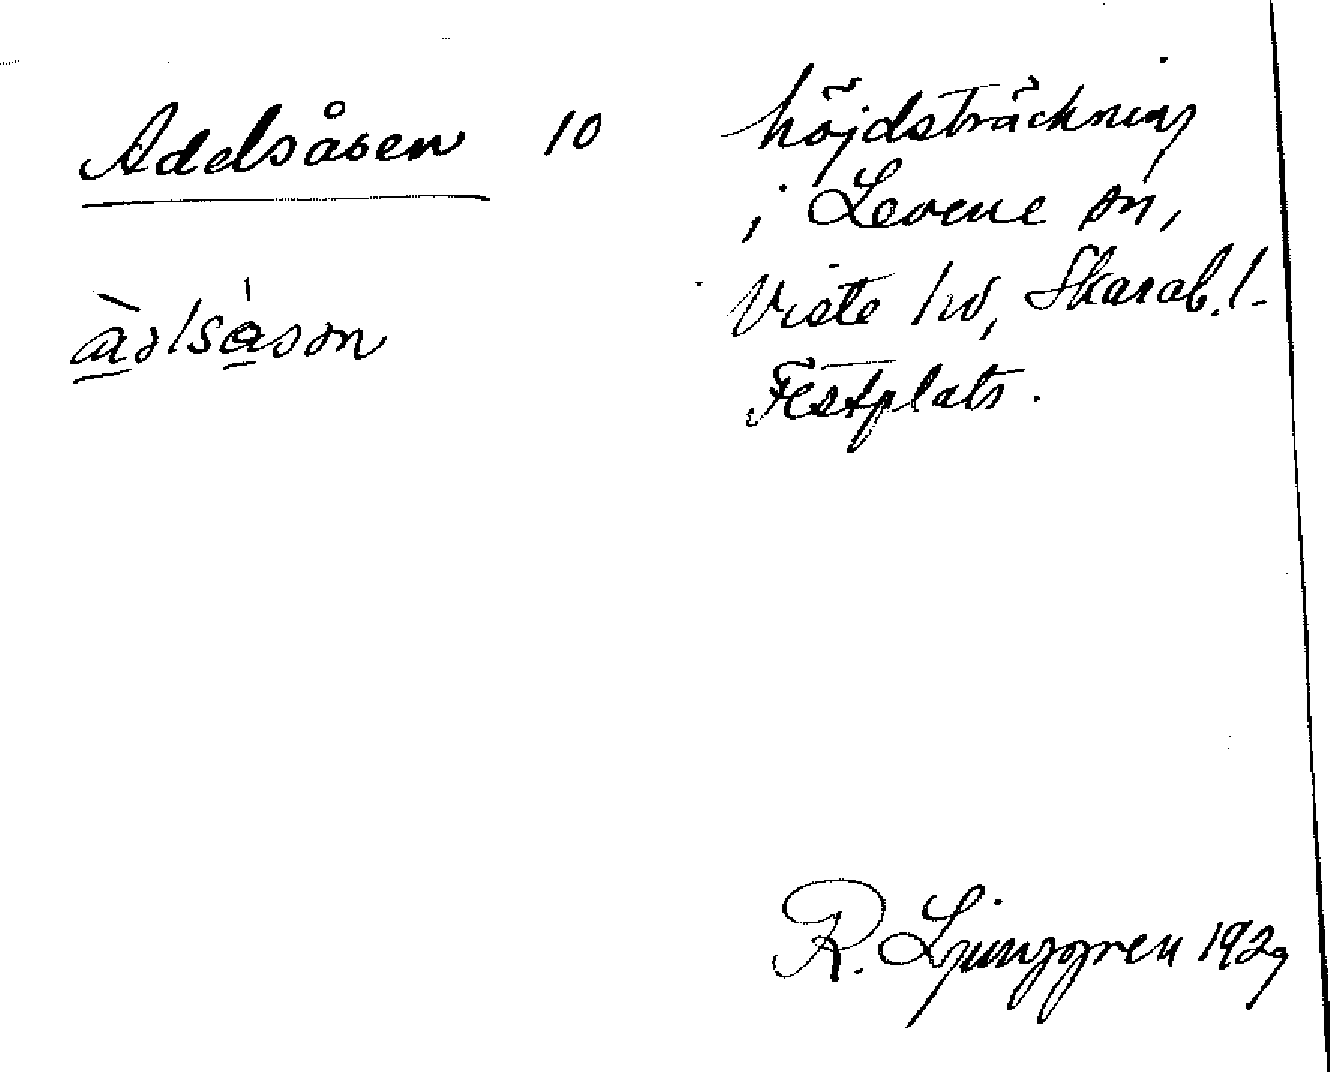 Adelsåsen 10
höjdsträckning
i Levene sn,
Viste hd, Skarab. l.
Festplats.
R. Ljunggren 1929